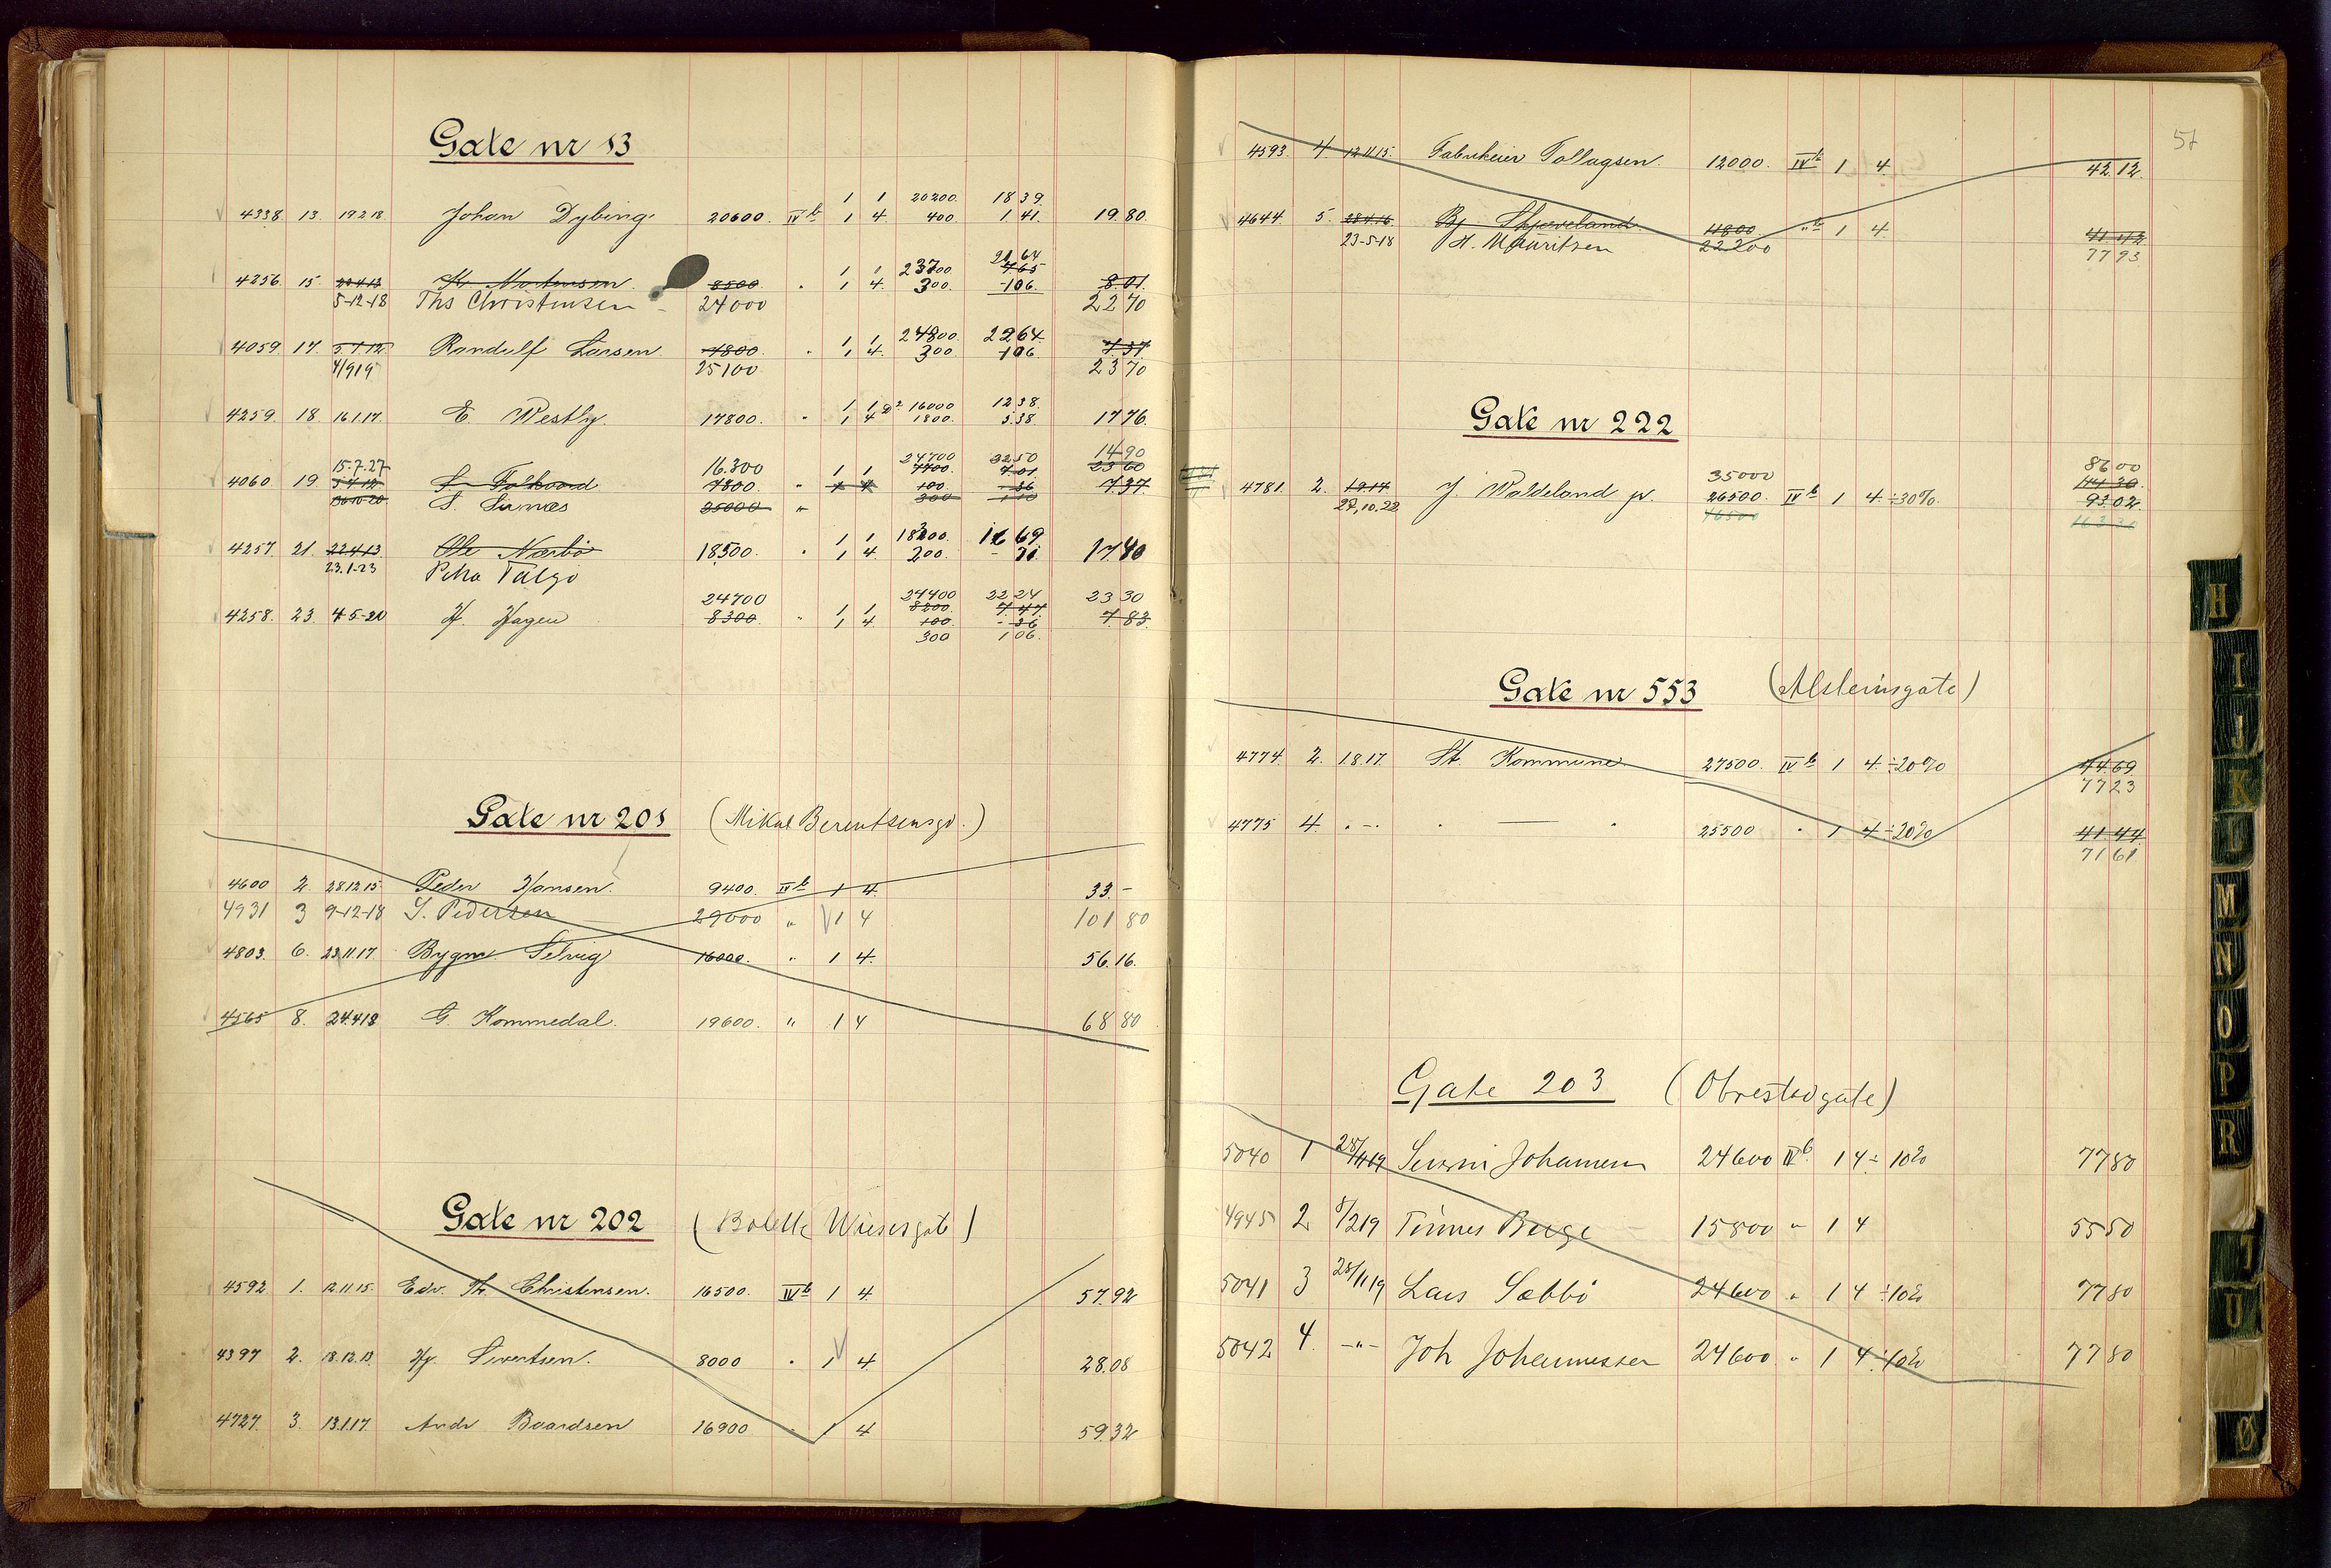 Gate nr 13
1 1 20200. 18 39.
4338. 13. 19.2.18. Johan Dybing. 20600. IVb 1 4. 400. 1 41. 19.80.
1 1 23700. 21 64 7.65
4256. 15. K. Mortensen. 8500. " 1 4. 300. 106. 8.01.
5-12-18 Ths Christensen 24000 22 70
1 1 24800 22 64
4059. 17. 5.7.12. Randulf Larsen. 7800. " 1 4. 300. 106. 7.37
4/9 19 25100 23 70
1 1 16000 12 38.
4259. 18 16.1.17. E. Westly. 17800. " 1 4 1800. 5.38. 17.76.
15-7-27 16.300 1 1 24700 7700. 22 50 7.01 14 90 23 60
4060. 19. 5.7.12. 7800. " 1 4 100. 36 7.37
S. Sunnæs 25000 " 300
1 1 18300. 16 69
4257. 21. 22.4.13. Ole Nærbö 18500. " 1 4 200. 17.40
23.1-23 Talgö
24700 24400 22 24 23 30
4258. 23. 4-5-20 H. Hagen 8300. " 1 1 8200. 7.47
1 4 100. 36 7.83.
300 1 06.
Gate nr 201 (Mikal Berentsensgt.)
4600 2. 28.12.15. Peder Hansen. 9400. IVb 1 4. 33.-
4931 3 9-12-18 S. Pedersen 29000 " 1 4 101 80
4803. 6. 23.11.17. Bygm. Selvig 16000. " 1 4. 56.16.
4565 8. 24.4.18 G. Kommedal. 19600. " 1 4 68 80
Gate nr 202 (Bolette Wiesesgate)
4592. 1. 12.11.15. Edv. Th. Christensen. 16500. IVb 1 4. 57.92
4397 2. 18.12.13. Hj. Sivertsen. 8000 " 1 4 28.08
4727. 3. 13.1.17. Andr Baardsen 16900 " 1 4 59.32
57
4593. 4. 12.11.15. Fabrikeier Tollagsen. 12000. IVb 1 4. 42.12.
4644. 5. 28.4.16. Bj. Skjæveland. 11800. "b 1 4. 41.42
23-5-18 H. Mauritzen 22200 77 93
Gate nr 222
35000 86 00
4781. 2. 1.9.17. J. Waldeland jr. 26500. IVb 1 4. ÷30%. 93.02
27.10.22 46500
Gate nr 553 (Alsteinsgate)
4774. 2. 1.8.17. St. Kommune. 27500. IVb 1 4. ÷20% 44.69.
77 23
4775 4. " - " — " 25500 " 1 4 ÷20% 41 44
71 61
Gate 203 (Obrestadgate)
5040 1 28/11 19 Johannesen 24600 IVb 1 4 ÷ 10% 77 80
4945 2 8/2 19 Tönnes Berge 15800 " 1 4 55 50
5041 3 28/11 19 Lars Sæbbö 24600 " 1 4 ÷10% 77 80
5042 4. - " - Joh Johannessen 24600 " 1 4 ÷10% 77 80
H
I
J
K
L
M
N
O
P
R
T
U
Ø